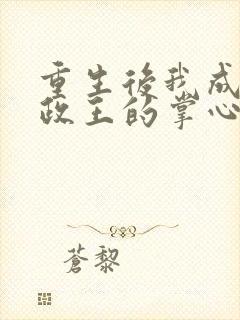 重生後我成
政王的掌心
蒼黎